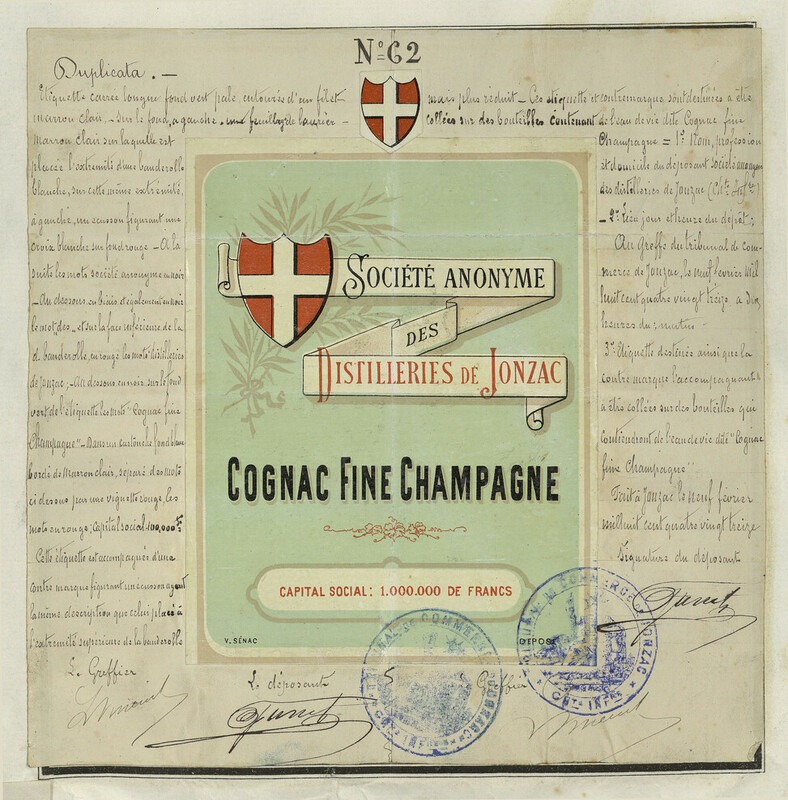 Nº 62
Duplicata. —
Etiquette carrée longue fond vert pale, entourée d'un filet
marron clair. — Sur le fond, a gauche, une feuille de laurier
marron clair sur laquelle est
placée l'extremité d'une banderolle
blanche, sur cette même extrémité,
à gauche, un ecusson figurant une
croix blanche sur fond rouge — A la
suite les mots société anonyme en noir
— Au dessous, en biais et également en noir
le mot des — et sur la face inférieure de la
d. banderolle, en rouge les mots distilleries
de Jonzac; — Au dessous en noir sur le fond
vert de l'étiquette les mots "Cognac fine
Champagne" — Dans un cartouche fond blanc
bordé de marron clair, séparé des mots
ci dessus par une vignette rouge, les
mots en rouge; Capital social
Cette étiquette est accompagnée d'une
contre marque figurant un ecusson ayant
la même description que celui placé à
l'extremité supérieure de la banderolle
mais plus réduit — Ces étiquette et contremarque sont destinées a être
collées sur des bouteilles contenant de l'eau de vie dite Cognac fine
Champagne = 1º Nom, profession
et domicile du déposant société anonyme
des distilleries de Jonzac (Chte Infre)
— 2º Lieu jour et heure du dépôt:
Au Greffe du tribunal de com-
merce de Jonzac, le neuf février mil
huit cent quatre vingt treize a dix
heures du matin —
3º Etiquette destinée ainsi que la
contre marque l'accompagnant
à être collées sur des bouteilles qui
contiendront de l'eau de vie dite "Cognac
fine Champagne".
Fait à Jonzac le neuf février
mil huit cent quatre vingt treize
Signature du déposant
SOCIÉTÉ ANONYME
DES
DISTILLERIES DE JONZAC
COGNAC FINE CHAMPAGNE
CAPITAL SOCIAL: 1.000.000 DE FRANCS
V. SÉNAC
DEPOSÉ
Le Greffier
Le déposant
Greffier
TRIBUNAL DE COMMERCE DE JONZAC
CHTE INFRE
TRIBUNAL DE COMMERCE DE JONZAC
CHTE INFRE